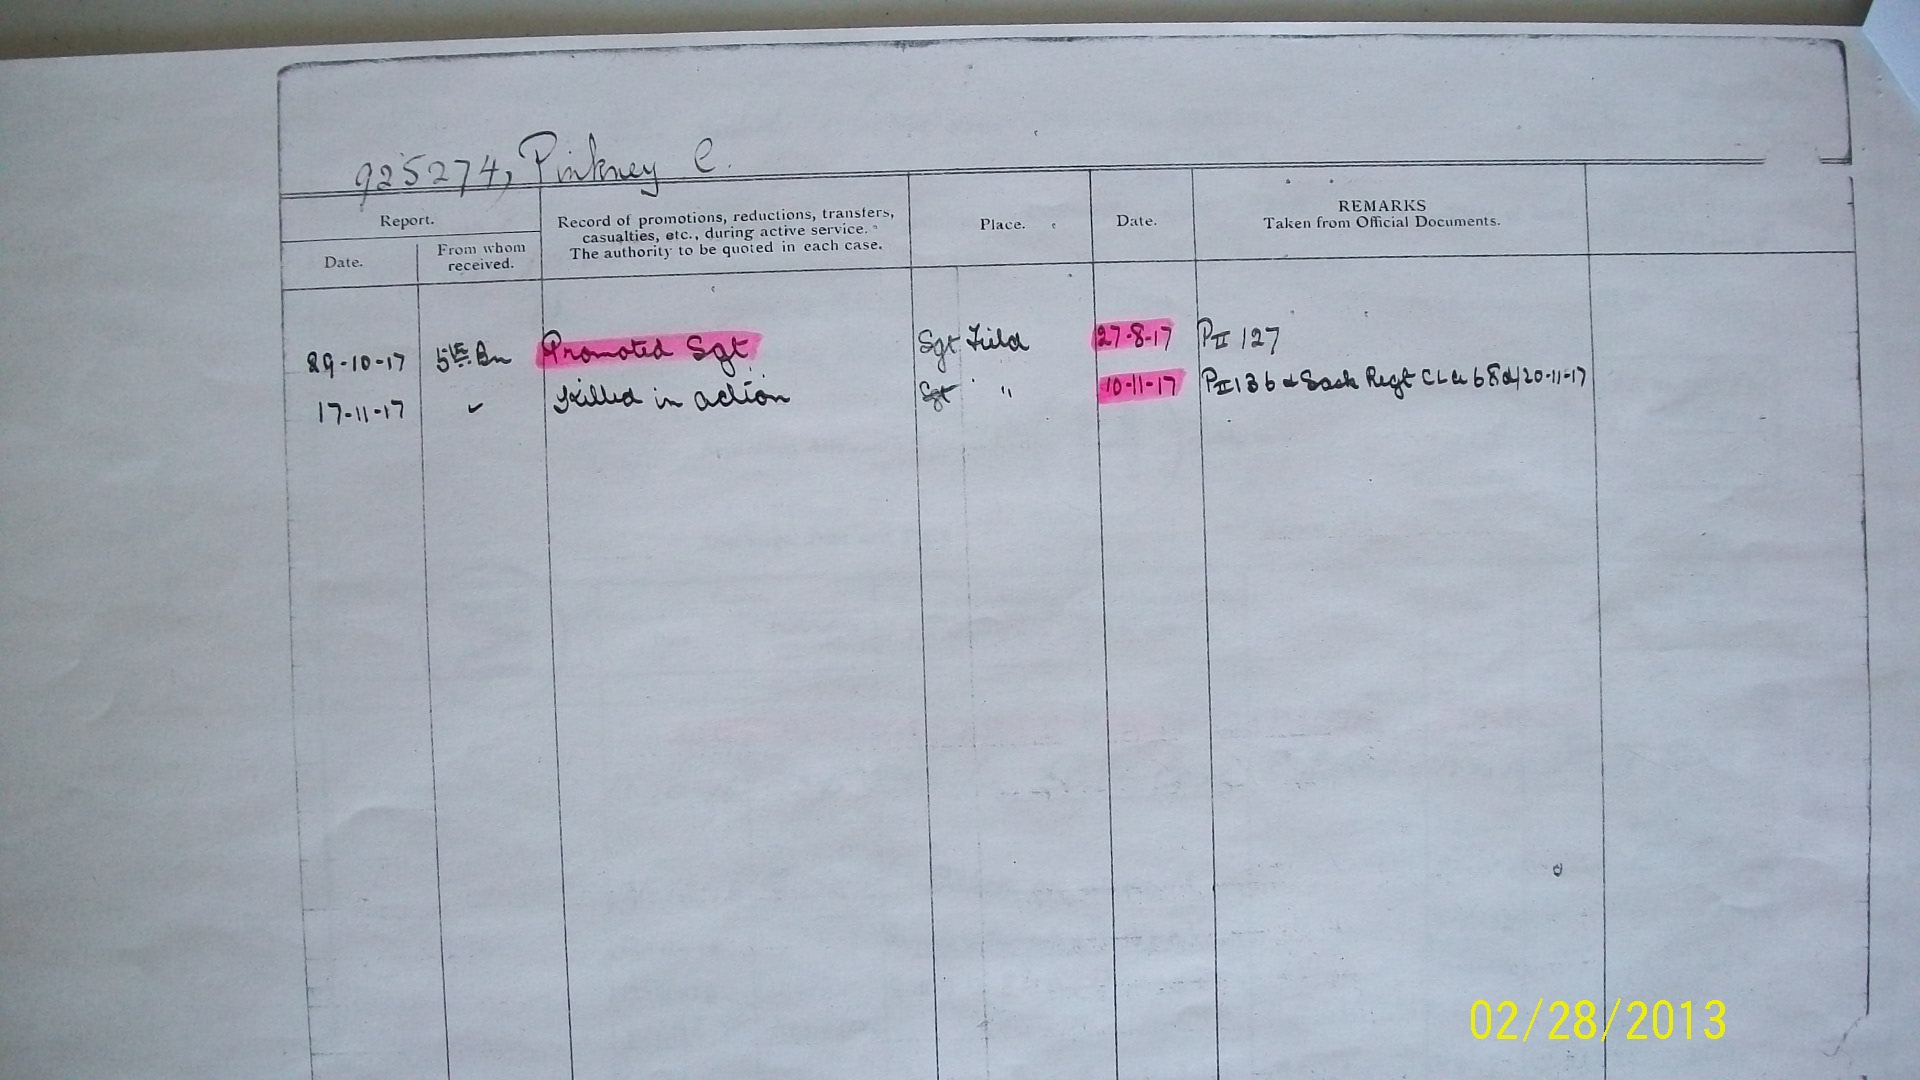 925274, Pinkney C.
Report.
Date.
From whom
received.
Record of promotions, reductions, transfers,
casualties, etc., during active service.
The authority to be quoted in each case.
Place.
Date.
REMARKS
Taken from Official Documents.
29-10-17 5th Bn Promoted Sgt Sgt Field 27-8-17 PII 127
17-11-17 " Killed in action Sgt " 10-11-17 PII 136 & Sask Regt CL 68 d/20-11-17
02/28/2013